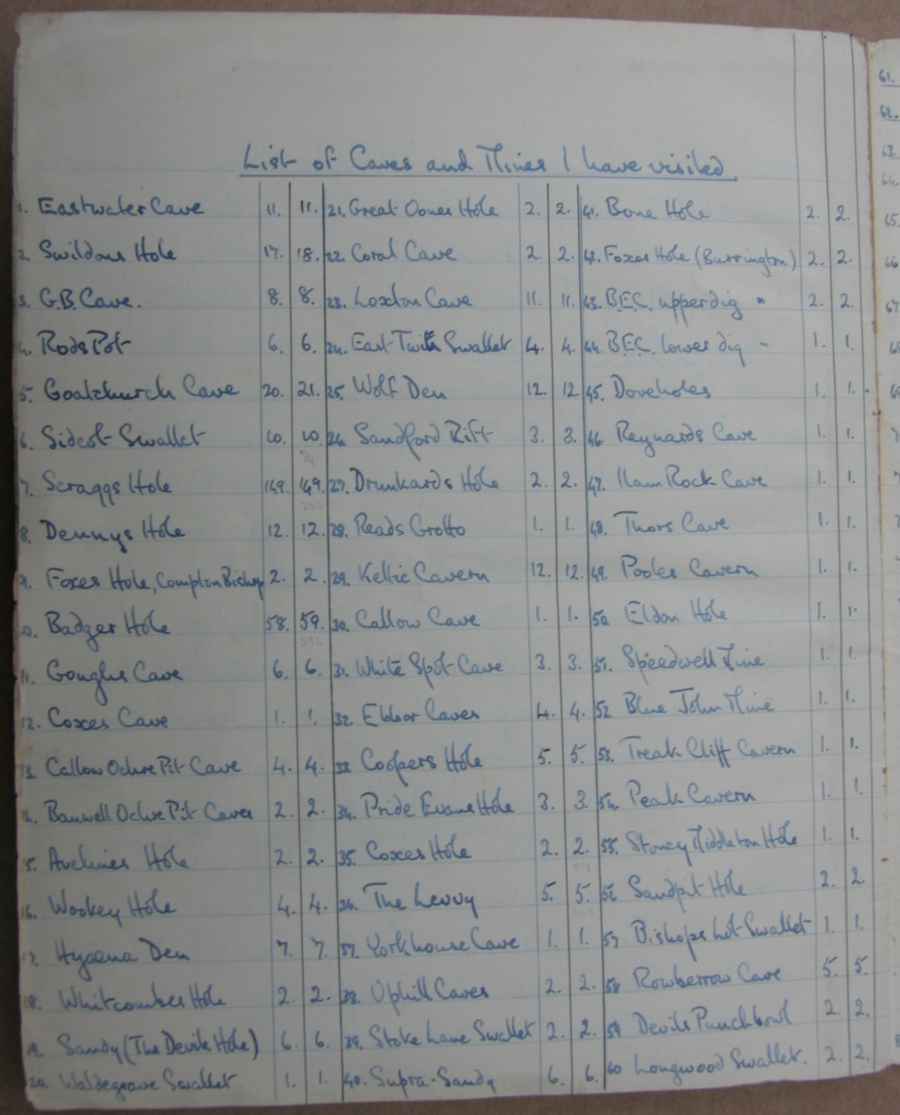 List of Caves and Mines I have visited
1. Eastwater Cave 11. 11. 21. Great Oones Hole 2. 2. 41. Bone Hole 2. 2. 61.
2. Swildons Hole 17. 18. 22. Coral Cave 2 2. 42. Foxes Hole (Burrington) 2. 2. 62.
3. G.B. Cave. 8. 8. 23. Loxton Cave 11. 11. 43. B.E.C. upper dig " 2. 2. 63.
4. Rods Pot 6. 6. 24. East Twin Swallet 4. 4. 44. B.E.C. lower dig - 1. 1. 64.
5. Goatchurch Cave 20. 21. 25. Wolf Den 12. 12 45. Doveholes 1. 1. 65.
6. Sidcot Swallet 10. 10. 26. Sandford Rift 3. 3. 46 Reynards Cave 1. 1. 66
7. Scraggs Hole 149. 149. 27. Drunkards Hole 2. 2. 47. Ilam Rock Cave 1. 1. 67
8. Dennys Hole 12. 12. 28. Reads Grotto 1. 1. 48. Thors Cave 1. 1.
9. Foxes Hole, Compton Bishop 2. 2. 29. Keltic Cavern 12. 12. 49. Pooles Cavern 1. 1.
10. Badger Hole 58. 59. 30. Callow Cave 1. 1. 50 Eldon Hole 1. 1.
11. Goughs Cave 6. 6. 31. White Spot Cave 3. 3. 51. Speedwell Mine 1. 1.
12. Coxes Cave 1. 1. 32. Ebbor Caves 4. 4. 52 Blue John Mine 1. 1.
13. Callow Ochre Pit Cave 4. 4. 33 Coopers Hole 5. 5. 53. Treak Cliff Cavern 1. 1.
14. Banwell Ochre Pit Caves 2. 2. 34. Pride Evans Hole 3. 3. 54. Peak Cavern 1. 1.
15. Avelines Hole 2. 2. 35. Coxes Hole 2. 2. 55. Stoney Middleton Hole 1. 1.
16. Wookey Hole 4. 4. 36. The Levvy 5. 5. 56 Sandpit Hole 2. 2
17. Hyaena Den 7. 7. 37. Yorkhouse Cave 1. 1. 57 Bishops Lot Swallet 1. 1.
18. Whitcombes Hole 2. 2. 38. Uphill Caves 2. 2. 58 Rowberrow Cave 5. 5.
19. Sandy (The Devils Hole) 6. 6. 39. Stoke Lane Swallet 2. 2. 59 Devils Punchbowl 2 2.
20. Waldegrave Swallet 1. 1. 40. Supra-Sandy 6. 6. 60 Longwood Swallet. 2. 2.